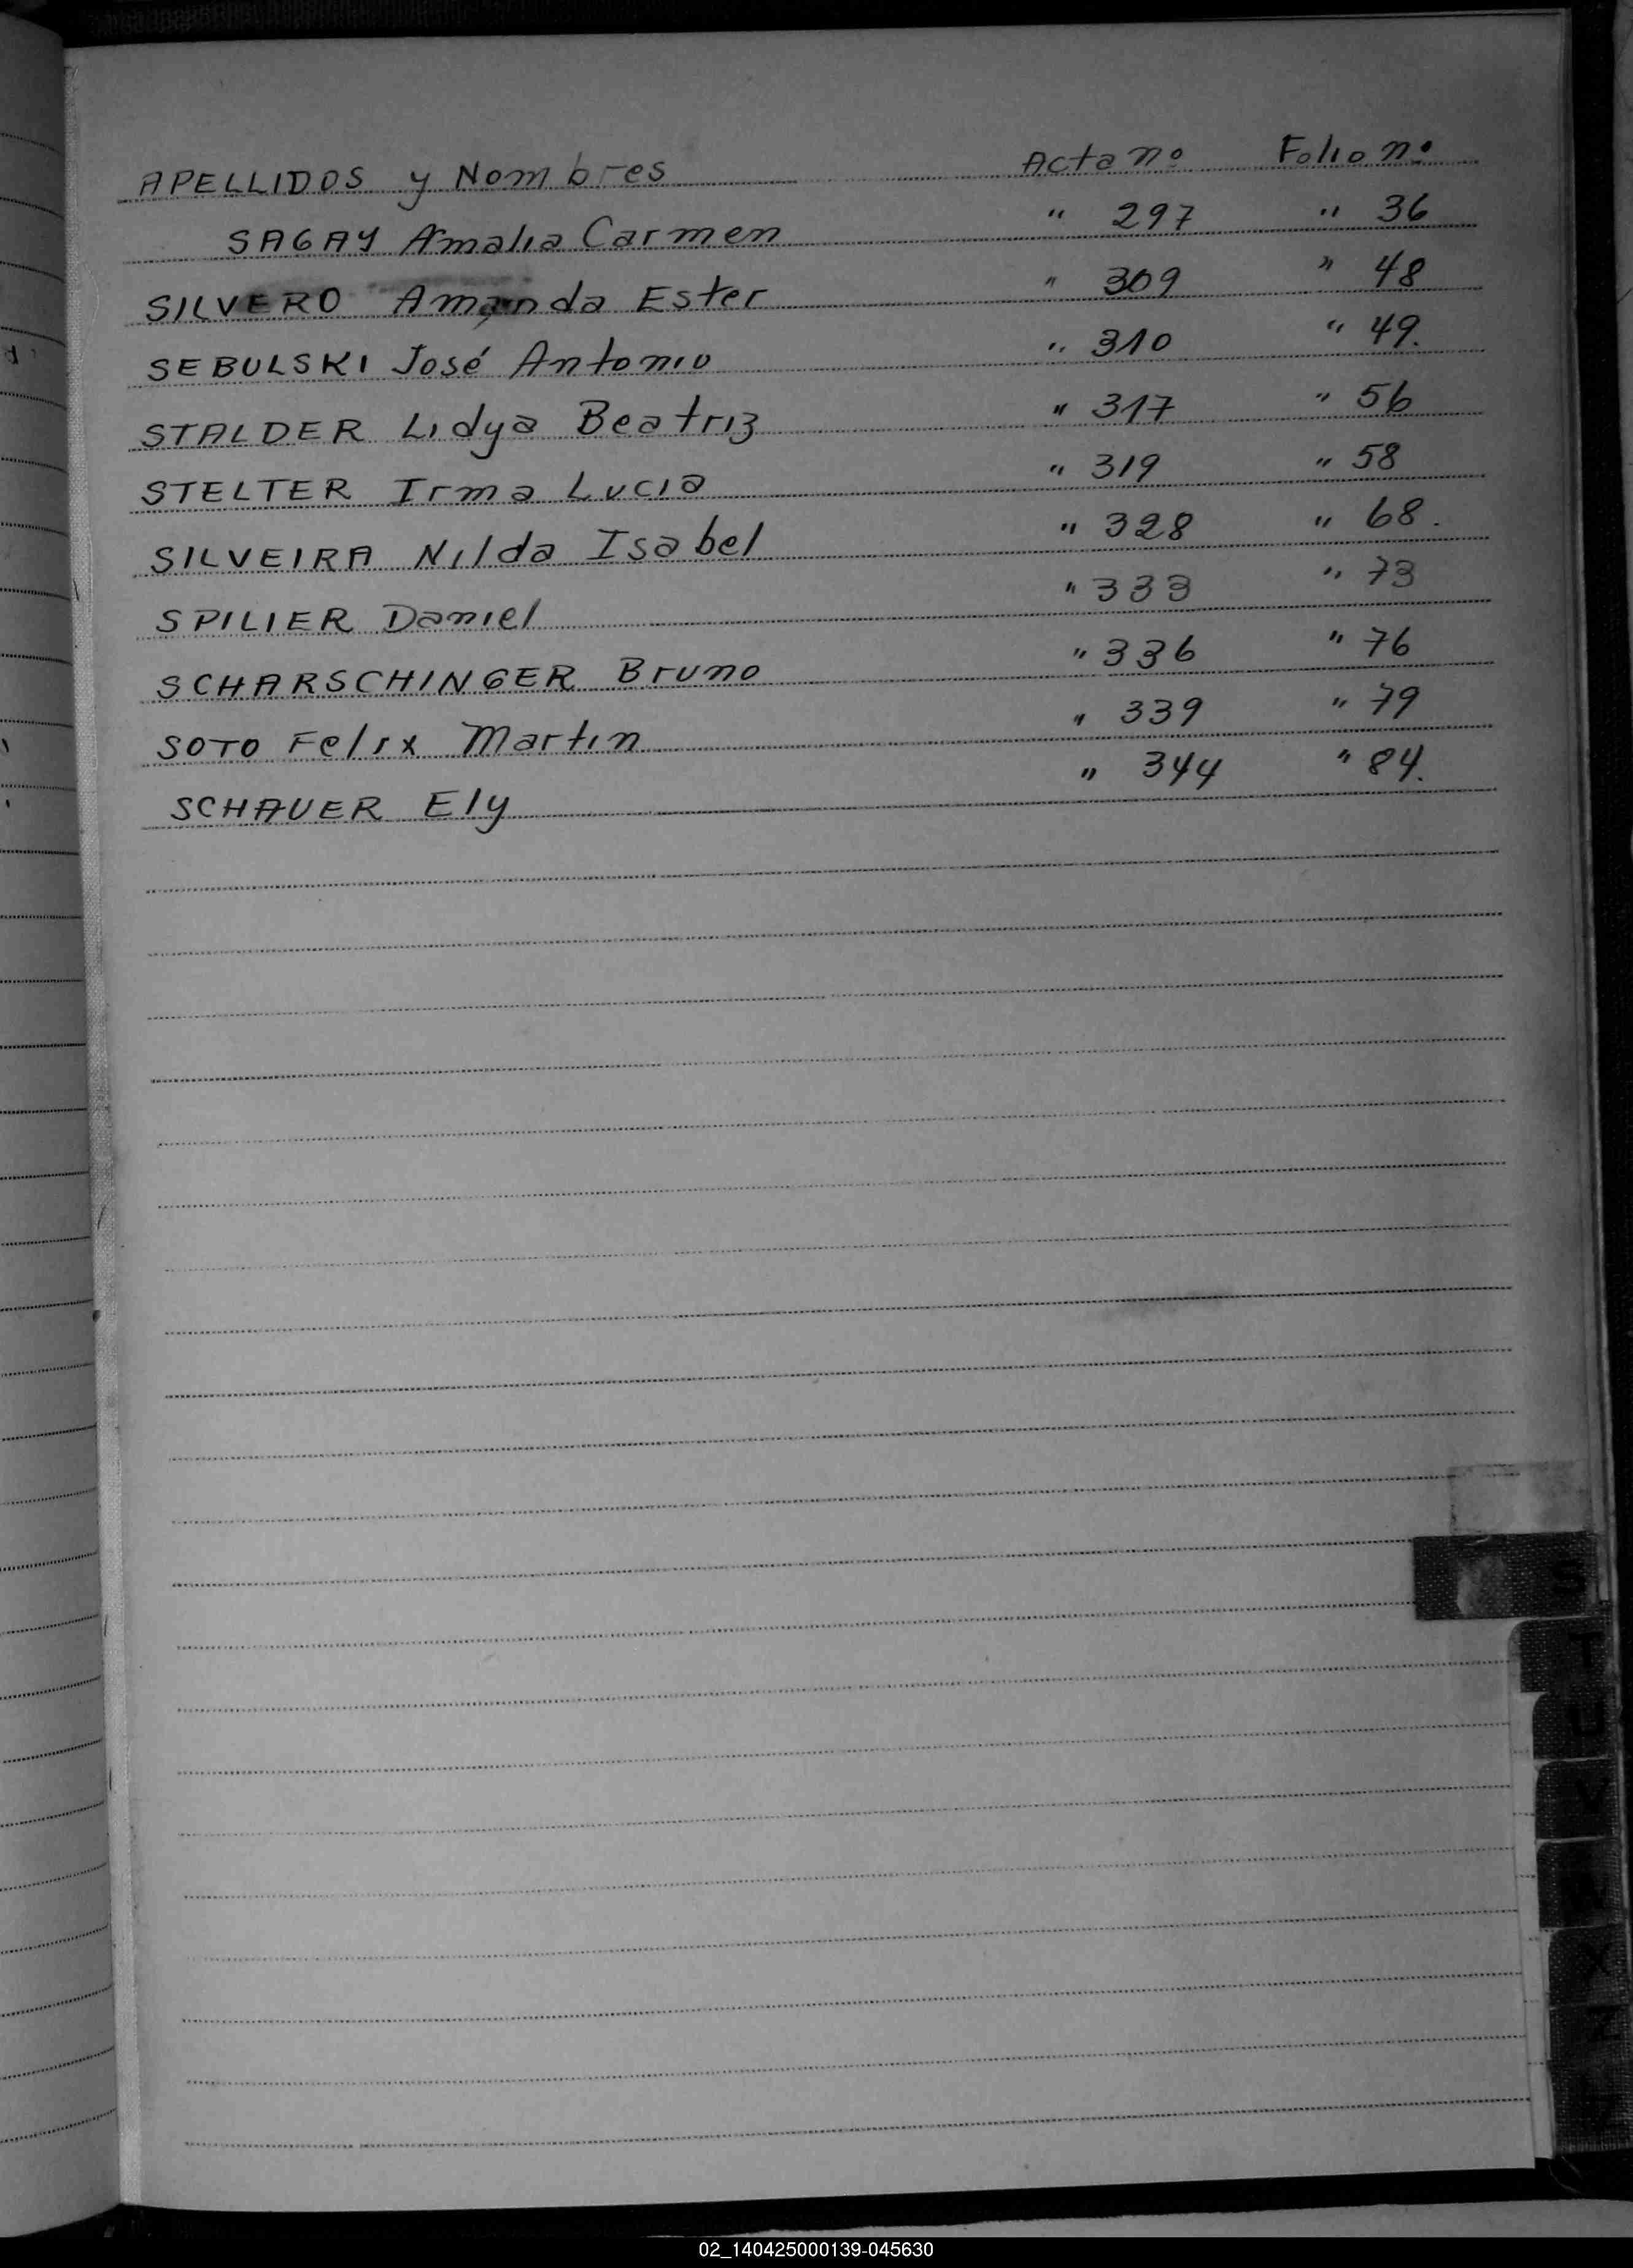 APELLIDOS y Nombres Acta nº Folio nº
SAGAY Amalia Carmen " 297 " 36
SILVERO Amanda Ester " 309 " 48
SEBULSKI José Antonio " 310 " 49.
STALDER Lidya Beatriz " 317 " 56
STELTER Irma Lucia " 319 " 58
SILVEIRA Nilda Isabel " 328 " 68.
SPILIER Daniel " 333 " 73
SCHARSCHINGER Bruno " 336 " 76
SOTO Felix Martin " 339 " 79
SCHAUER Ely " 344 " 84.
S
T
U
V
W
X
Z
02_140425000139-045630